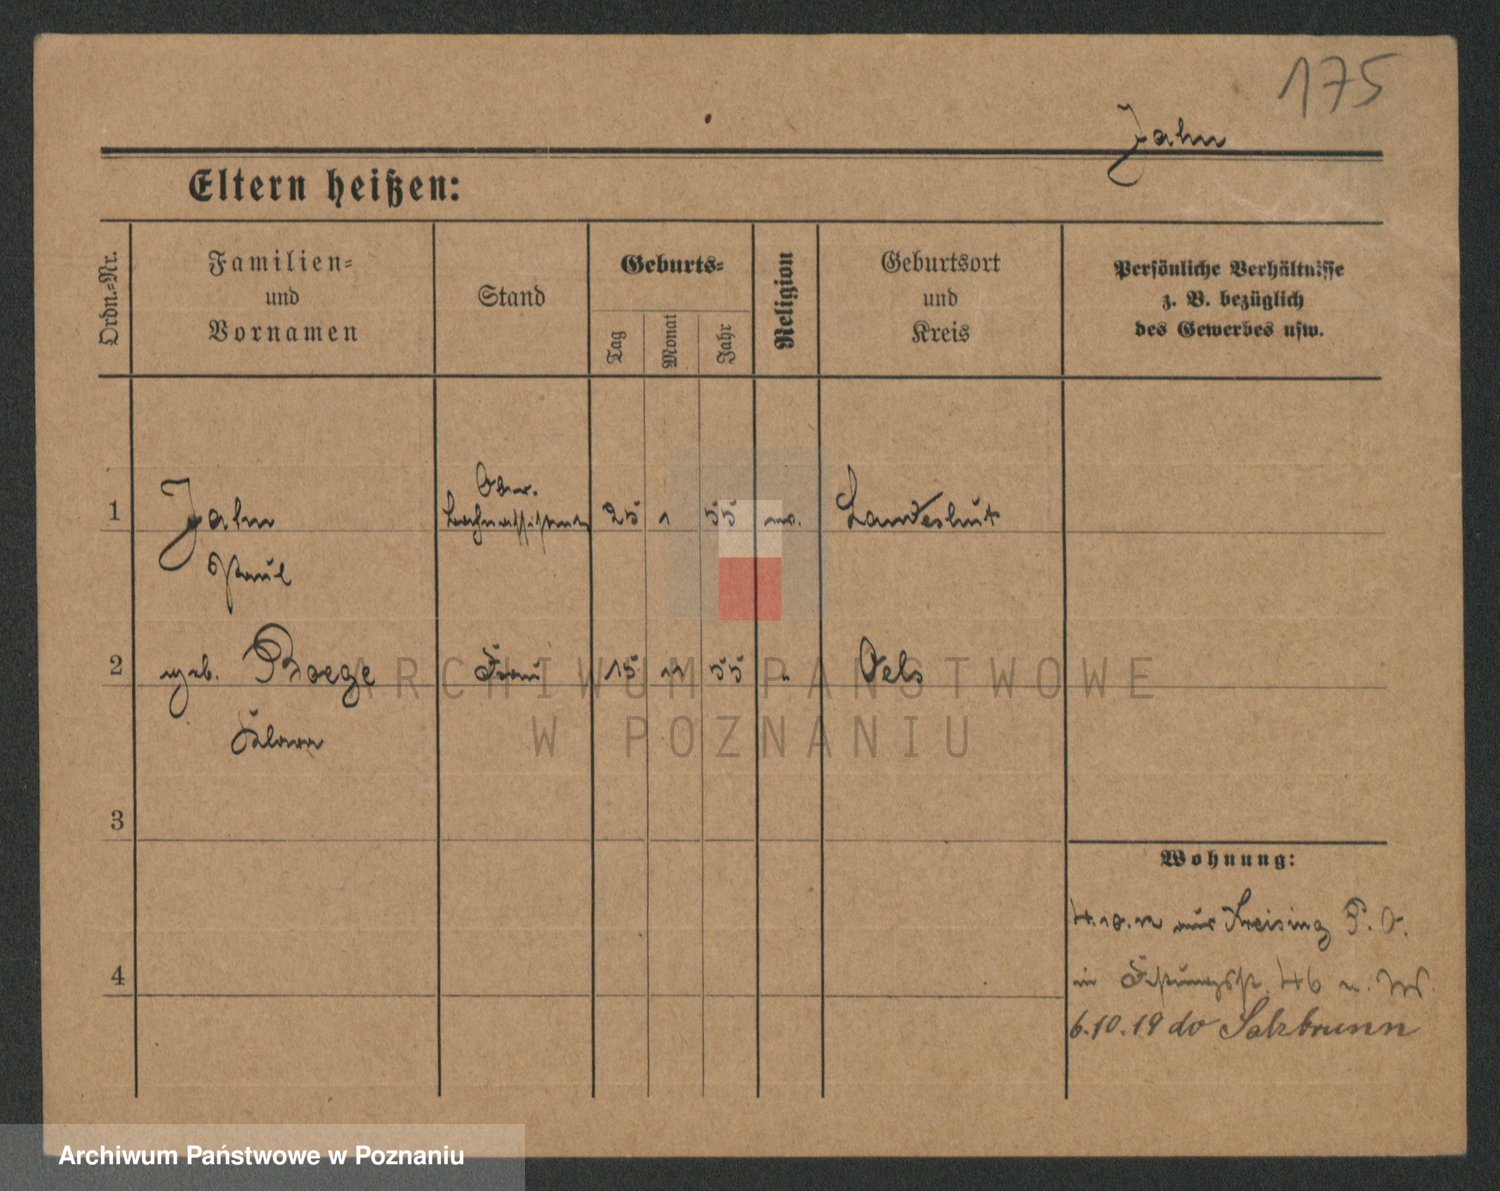 175
Jahn
Eltern heißen:
Ordn.-Nr.
Familien-
und
Vornamen
Stand
Geburts-
Tag
Monat
Jahr
Religion
Geburtsort
und
Kreis
Persönliche Verhältnisse
z. B. bezüglich
des Gewerbes usw.
Ober.
1 Jahn 25 1 55 Landeshut
Paul
2 geb. Boege Frau 15 11 55 " Oels
Klara
3
4
Wohnung:
aus Kreising P. O.
in 46
6.10.19 do Salzbrunn
ARCHIWUM PAŃSTWOWE
W POZNANIU
Archiwum Państwowe w Poznaniu